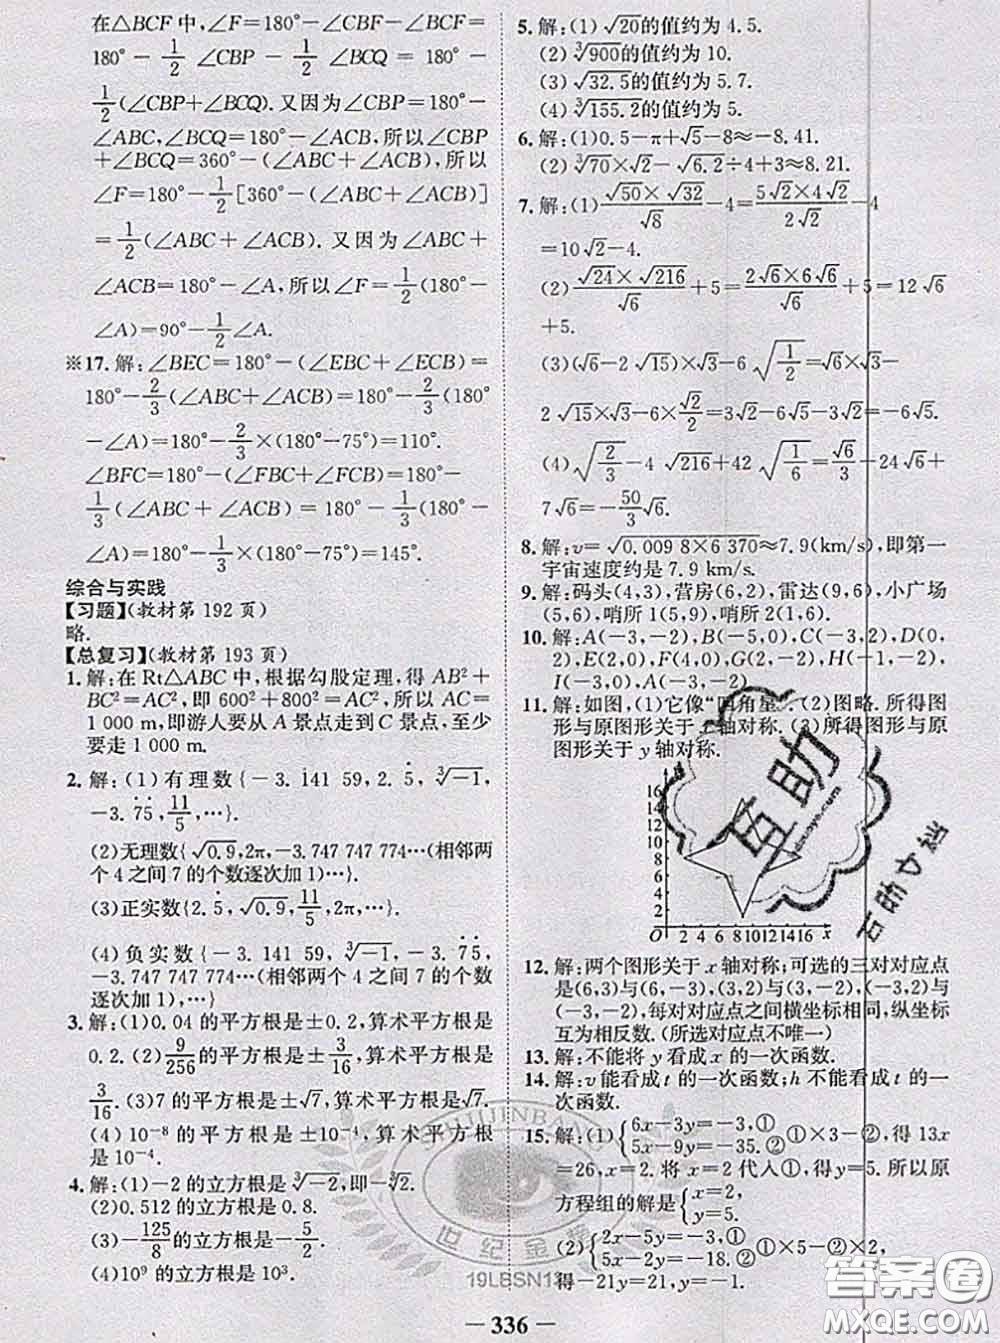 在△BCF中,∠F=180°-∠CBF-∠BCF=
180°-1/2∠CBP-180°-1/2∠BCQ=180°-
1/2(∠CBP+∠BCQ).又因为∠CBP=180°-
∠ABC,∠BCQ=180°-∠ACB,所以∠CBP
+∠BCQ=360°-(∠ABC+∠ACB),所以
∠F=180°-1/2[360°-(∠ABC+∠ACB)]
=1/2(∠ABC+∠ACB).又因为∠ABC+
∠ACB=180°-∠A,所以∠F=1/2(180°-
∠A)=90°-1/2∠A.
※17.解:∠BEC=180°-(∠EBC+∠ECB)=
180°-2/3(∠ABC+∠ACB)=180°-2/3(180°
-∠A)=180°-2/3×(180°-75°)=110°.
∠BFC=180°-(∠FBC+∠FCB)=180°-
1/3(∠ABC+∠ACB)=180°-1/3(180°-
∠A)=180°-1/3×(180°-75°)=145°.
综合与实践
【习题】(教材第192页)
略.
【总复习】(教材第193页)
1.解:在Rt△ABC中,根据勾股定理,得AB²+
BC²=AC²,即600²+800²=AC²,所以AC=
1 000 m,即游人要从A景点走到C景点,至少
要走1 000 m.
2.解:(1)有理数{-3.141 59,2.5̇,∛-1,
-3.7̇5̇,11/5,…}
(2)无理数{√0.9,2π,-3.747 747 774…(相邻两
个4之间7的个数逐次加1)…}.
(3)正实数{2.5̇,√0.9,11/5,2π,…}.
(4)负实数{-3.141 59,∛-1,-3.7̇5̇,
-3.747 747 774…(相邻两个4之间7的个数
逐次加1)…}.
3.解:(1)0.04的平方根是±0.2,算术平方根是
0.2.(2)9/256的平方根是±3/16,算术平方根是
3/16.(3)7的平方根是±√7,算术平方根是√7.
(4)10⁻⁸的平方根是±10⁻⁴,算术平方根是
10⁻⁴.
4.解:(1)-2的立方根是∛-2,即-∛2.
(2)0.512的立方根是0.8.
(3)-125/8的立方根是-5/2.
(4)10⁹的立方根是10³.
5.解:(1)√20的值约为4.5.
(2)∛900的值约为10.
(3)√32.5的值约为5.7.
(4)∛155.2的值约为5.
6.解:(1)0.5-π+√5-8≈-8.41.
(2)∛70×√2-√6.2÷4+3≈8.21.
7.解:(1)√50×√32/√8-4=5√2×4√2/2√2-4
=10√2-4.
(2)√24×√216/√6+5=2√6×6√6/√6+5=12√6
+5.
(3)(√6-2√15)×√3-6√1/2=√6×√3-
2√15×√3-6×√2/2=3√2-6√5-3√2=-6√5.
(4)√2/3-4√216+42√1/6=√6/3-24√6+
7√6=-50/3√6.
8.解:v=√0.009 8×6 370≈7.9(km/s),即第一
宇宙速度约是7.9 km/s.
9.解:码头(4,3),营房(6,2),雷达(9,6),小广场
(5,6),哨所1(5,9),哨所2(9,2).
10.解:A(-3,-2),B(-5,0),C(-3,2),D(0,
2),E(2,0),F(4,0),G(2,-2),H(-1,-2),
I(-3,0),A(-3,-2).
11.解:如图,(1)它像“四角星”.(2)图略.所得图
形与原图形关于x轴对称.(3)所得图形与原
图形关于y轴对称.
16
14
12
10
8
6
4
2
O 2 4 6 8 10 12 14 16 x
12.解:两个图形关于x轴对称;可选的三对对应点
是(6,3)与(6,-3),(3,2)与(3,-2),(-3,2)与
(-3,-2),每对对应点之间横坐标相同,纵坐标
互为相反数.(所选对应点不唯一)
13.解:不能将y看成x的一次函数.
14.解:v能看成t的一次函数;h不能看成t的一
次函数.
15.解:(1){6x-3y=-3,① 5x-9y=-35.②①×3-②,得13x
=26,x=2.将x=2代入①,得y=5.所以原
方程组的解是{x=2, y=5.
(2){2x-5y=-3,① -4x+y=-18.②①×2+②,
得-21y... 
互助
世纪金榜
19LBSN13
答案圈
MXQE.COM
— 336 —